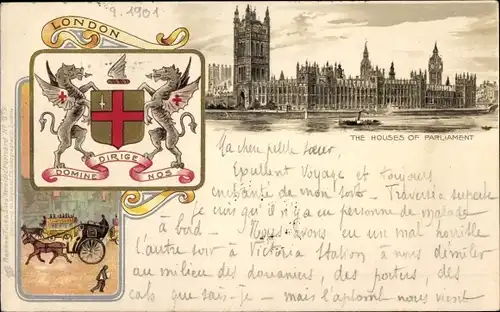 9. 1901
LONDON
THE HOUSES OF PARLIAMENT
DOMINE DIRIGE NOS
Ma chère petite sœur,
Excellent voyage et toujours
enchantée de mon sort - Traversée superbe
je crois qu'il n'y a eu personne de malade
à bord - Nous avons eu un mal horrible
l'autre soir à Victoria Station à nous démêler
au milieu des douaniers, des porters, des
cabs que sais-je - mais l'aplomb nous vient